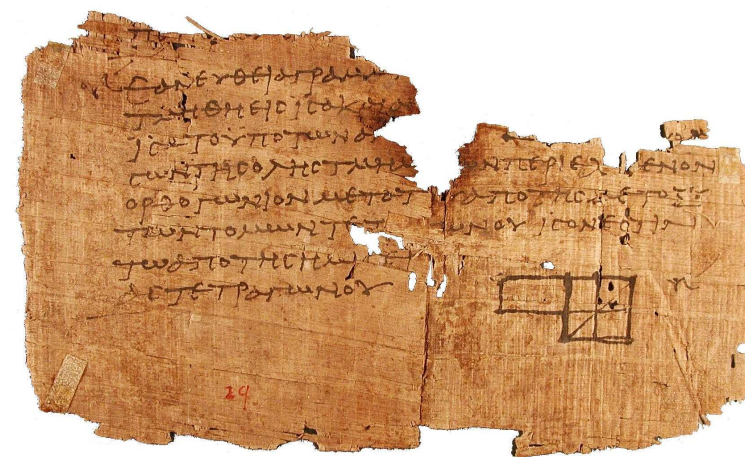 ΕΑΝ ΕΥΘΕΙΑ ΓΡΑΜΜ
ΤΜΗΘΗ ΕΙΣ ΙΣΑ ΚΑΙ Α
ΙΣΑ ΤΟ ΥΠΟ ΤΩΝ Α
ΣΩΝ ΤΗΣ ΟΛΗΣ ΤΜΗΜ Ν ΠΕΡΙΕΧ ΜΕΝΟΝ
ΟΡΘΟΓΩΝΙΟΝ ΜΕΤΑ ΤΟ ΑΠΟ ΤΗΣ ΜΕΤΟΞΥ
ΤΩΝ ΤΟΜΩΝ ΤΕΤ ΩΝΟΥ ΙΣΟΝ ΕΣΤΙΝ
ΤΩ ΑΠΟ ΤΗΣ ΗΜΙΣΕΙ
ΑΣ ΤΕΤΡΑΓΩΝΟΥ
29